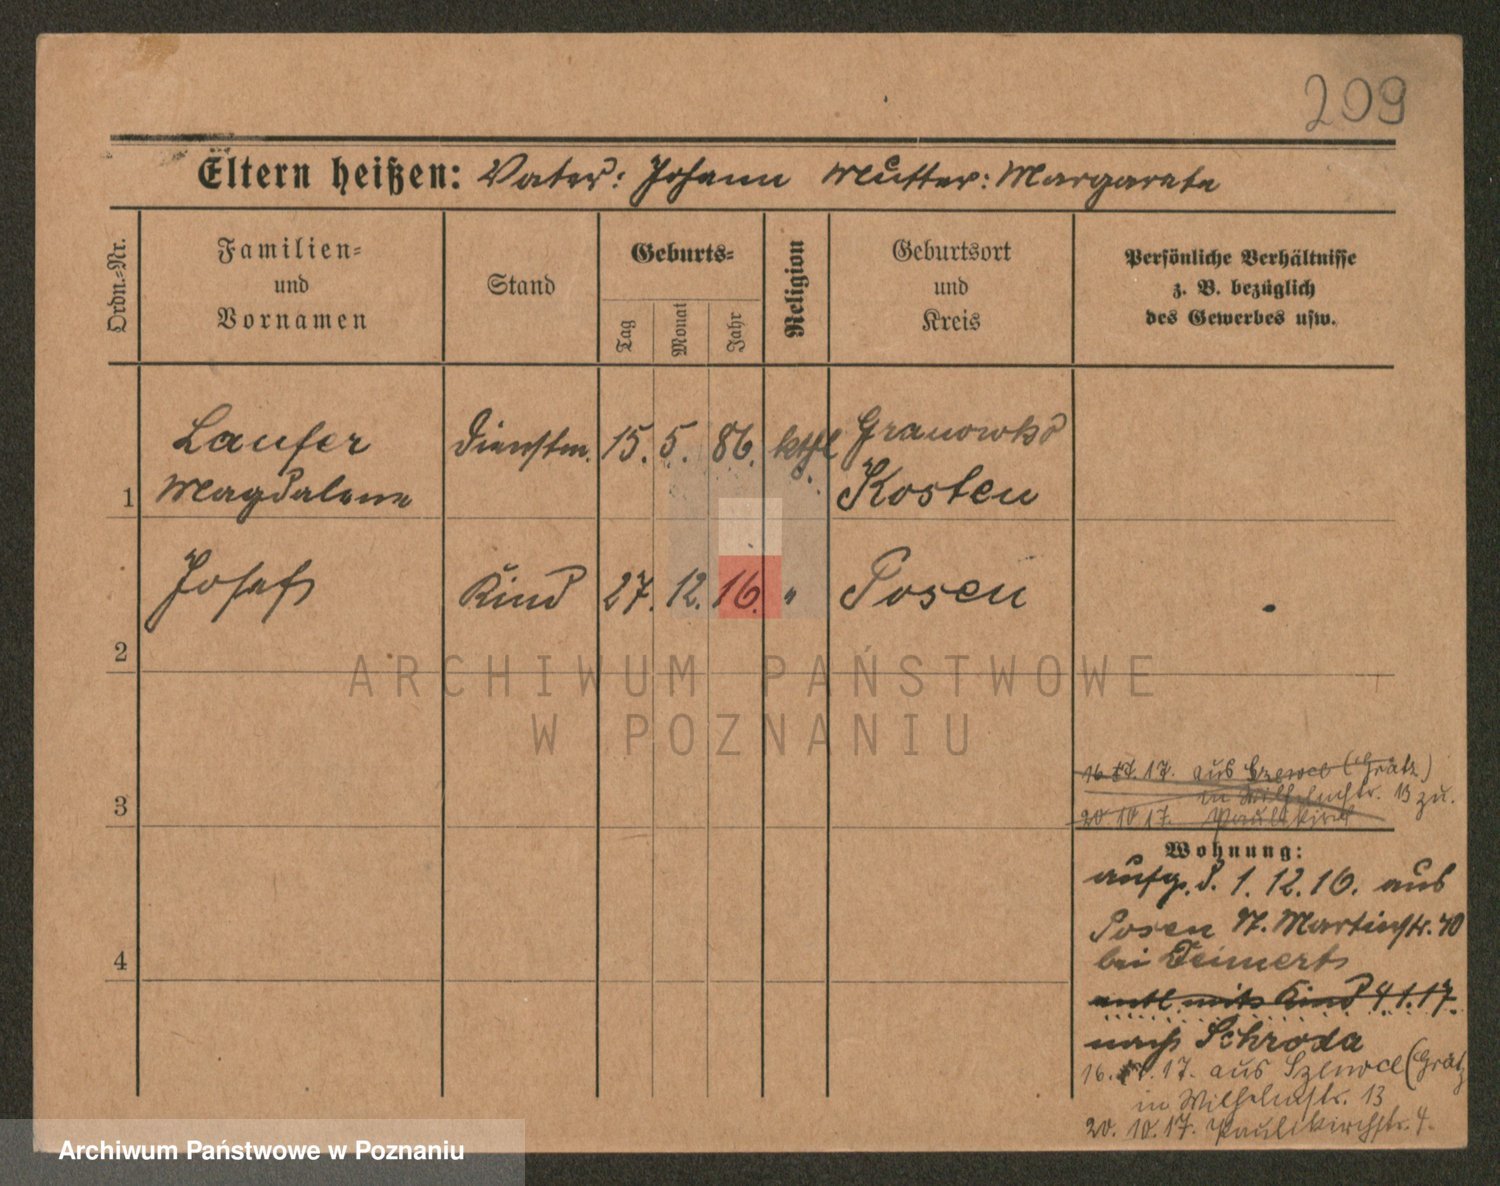 209
Eltern heißen: Vater: Johann Mutter: Margareta
Ordn.=Nr.
Familien=
und
Vornamen
Stand
Geburts=
Tag
Monat
Jahr
Religion
Geburtsort
und
Kreis
Persönliche Verhältnisse
z. B. bezüglich
des Gewerbes usw.
1
Laufer
Magdalena
Dienstm.
15. 5. 86.
kthl
Granowko
Kosten
2
Josef
Kind
27. 12. 16.
"
Posen
3
4
17. aus (Grätz)
in Wilhelmstr. 13 zu.
20. 10 17. Paulikirch
Wohnung:
aufg. d. 1. 12. 16. aus
Posen Martinstr. 40
bei
entl. mit Kind 4.1.17
nach Schroda
16. 17. aus (Grätz
in Wilhelmstr. 13
20. 10. 17. Paulikirchstr. 4.
ARCHIWUM PAŃSTWOWE
W POZNANIU
Archiwum Państwowe w Poznaniu